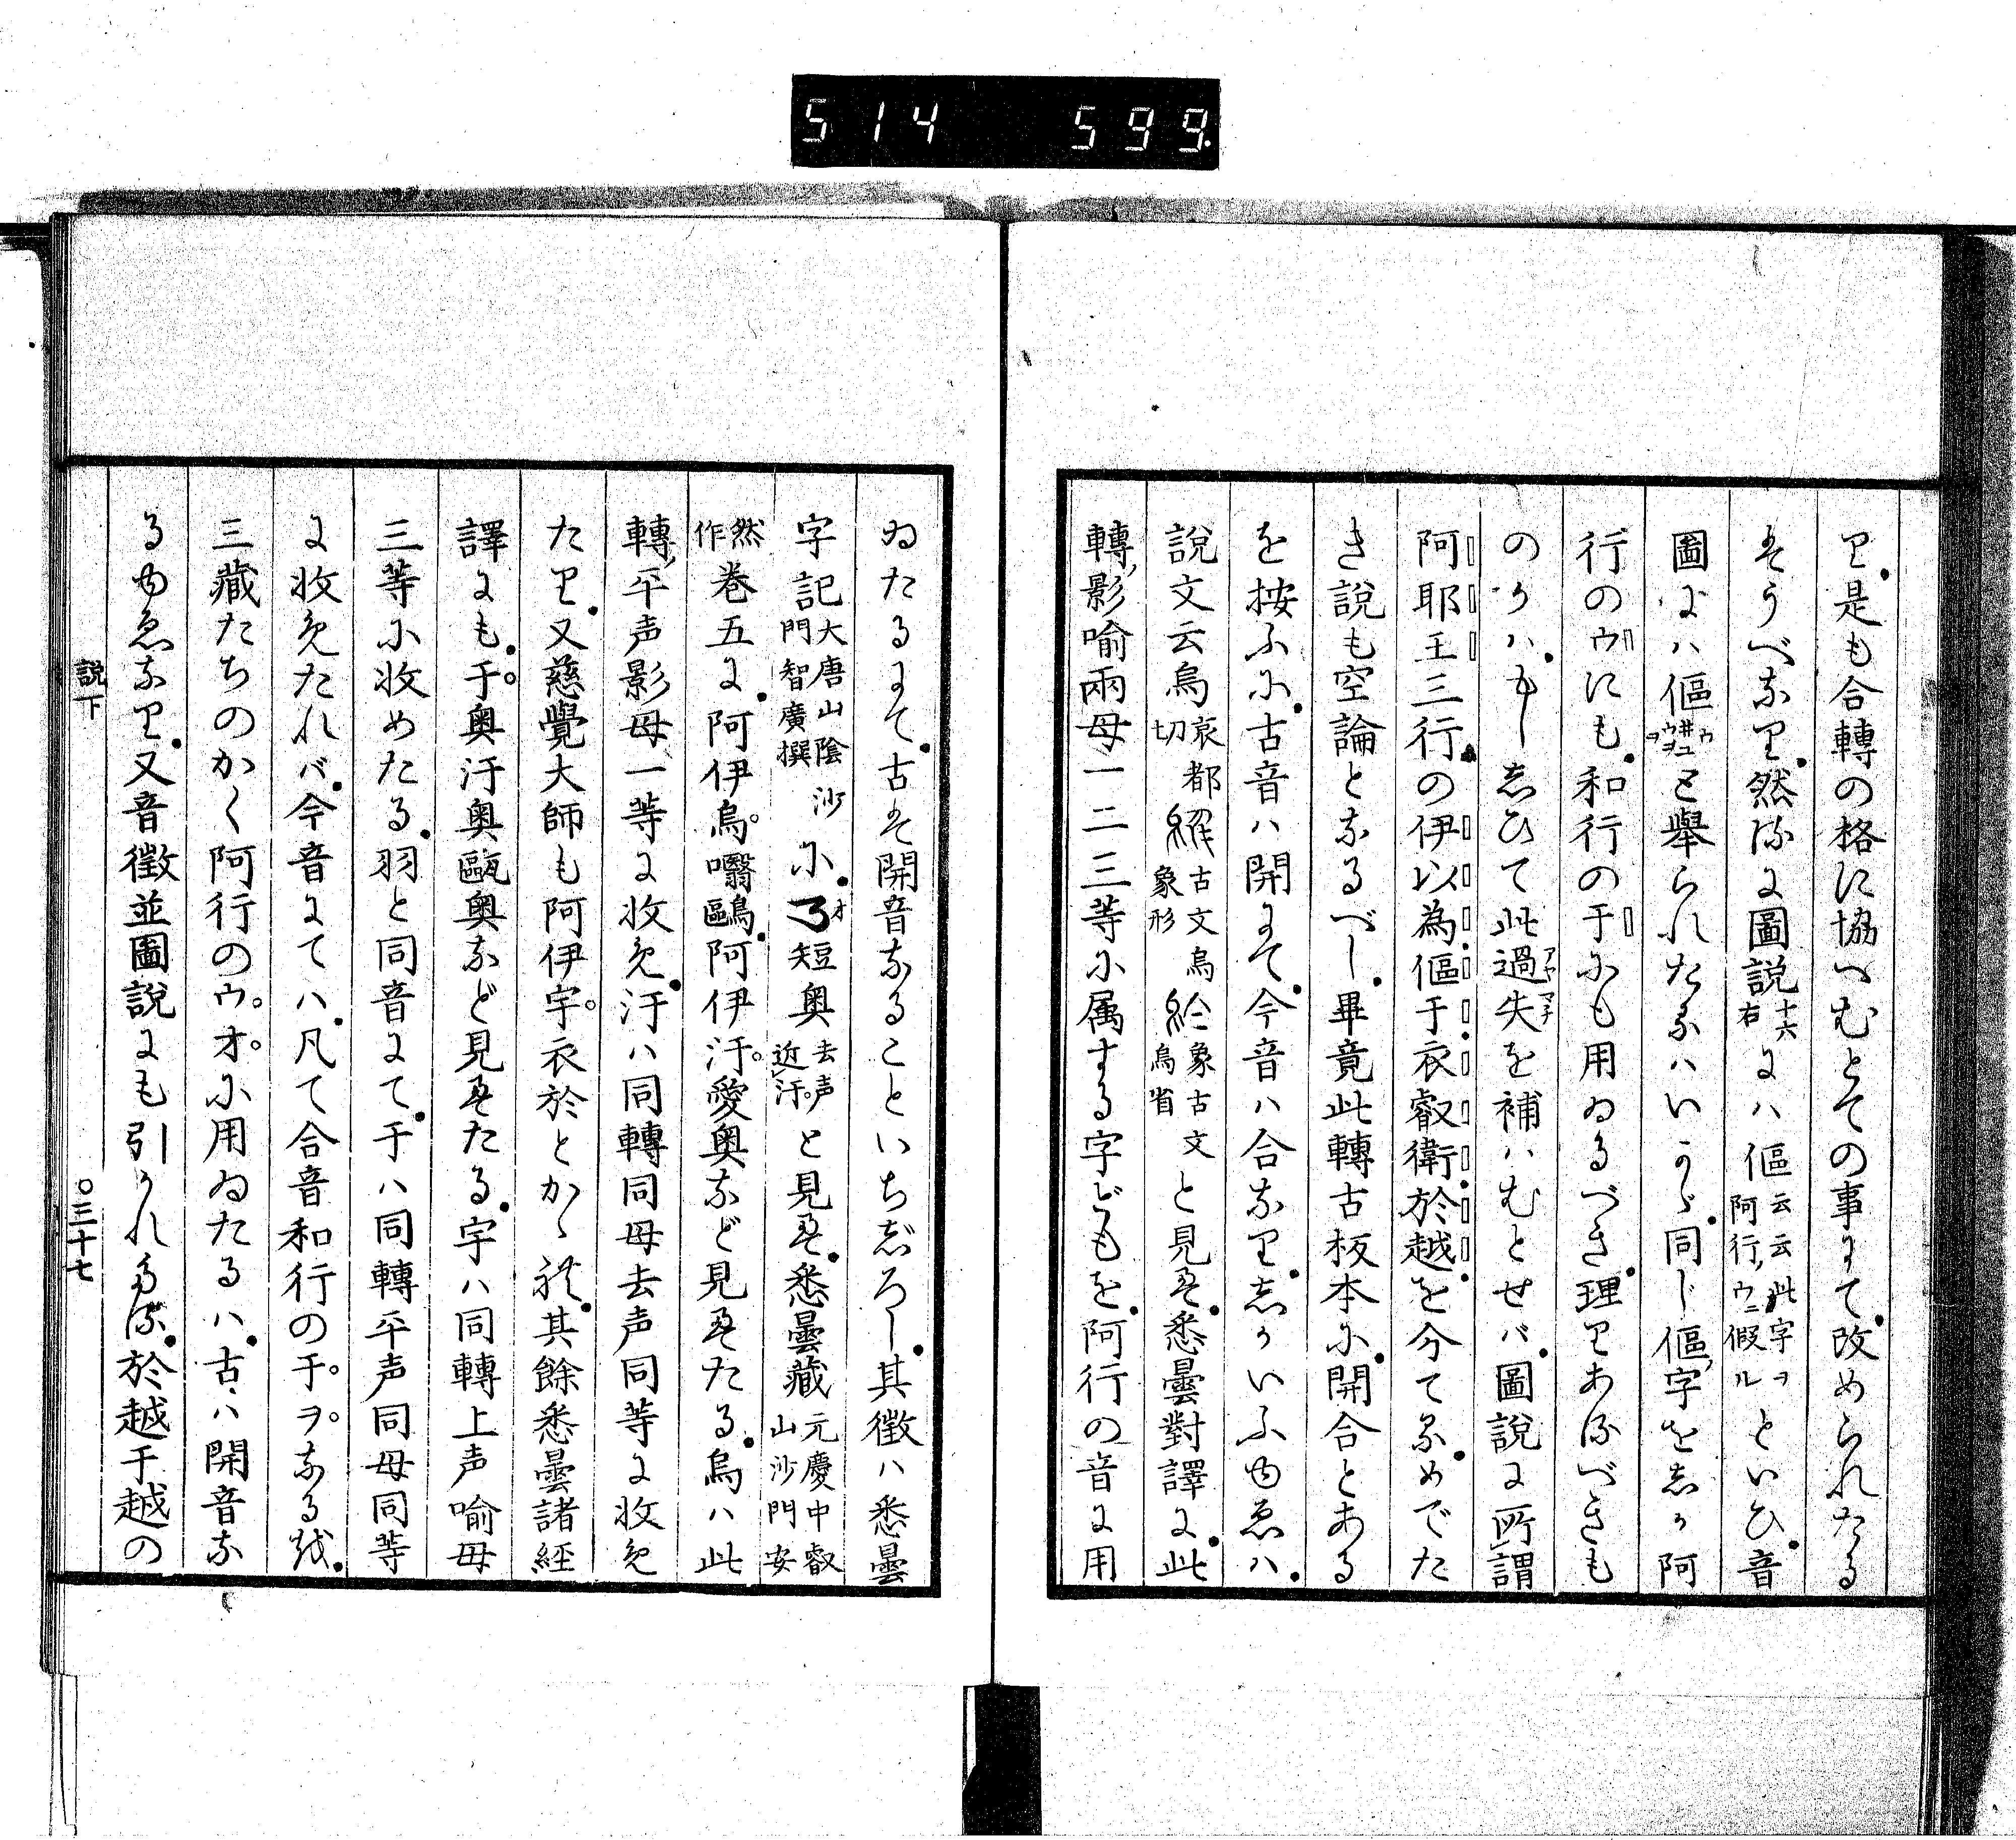 514 599.
り是も合轉の格に協へむとての事にて改められたる
そうべなり然るに圖説十六右には傴云云此字ヲ阿行ウニ假ルといひ音
圖には傴ウ井ユウヲヲと擧られたるはいかゞ同じ傴字をしか阿
行のウにも和行の于にも用ゐるべき理りあるべきも
のかはもししひて此過失アヤマチを補はむとせば圖說に所謂
阿耶王三行の伊以為傴于衣叡衛於越を分てるめでた
き說も空論となるべし畢竟此轉古板本に開合とある
を按ふに古音は開にて今音は合なりしかいふゆゑは
說文云烏哀都切古文烏象形象古文烏省と見ゆ悉曇對譯に此
轉影喻兩母一二三等に属する字どもを阿行の音に用
ゐたるにて古そ開音なることいちじろし其徴は悉曇
字記大唐山陰沙門智廣撰にオ短奧去声近汙と見ゆ悉曇藏元慶中叡山沙門安
然作巻五に阿伊烏嚈鷗阿伊汙愛奧など見えたる烏は此
轉平声影母一等に收め汙は同轉同母去声同等に收め
たり又慈覺大師も阿伊宇衣於とかゝれ其餘悉曇諸經
譯にも于奧汙奧甌奧など見えたる宇は同轉上声喻母
三等に收めたる羽と同音にて于は同轉平声同母同等
に收めたれば今音にては凡て合音和行の于ヲなるを
三藏たちのかく阿行のウオに用ゐたるは古は開音な
るゆゑなり又音徵並圖說にも引かれたる於越于越の
說下
〇三十七